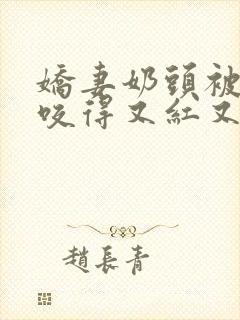 嬌妻奶頭被
咬得又紅又
趙長青